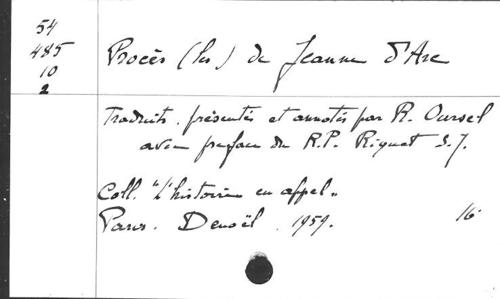 54
485
10
2
Procès (les) de Jeanne d'Arc
Traduits, présentés et annotés par R. Oursel
avec preface du R.P. Riquet S.J.
Coll. "L'histoire en appel"
Paris. Denoël. 1959. 16°